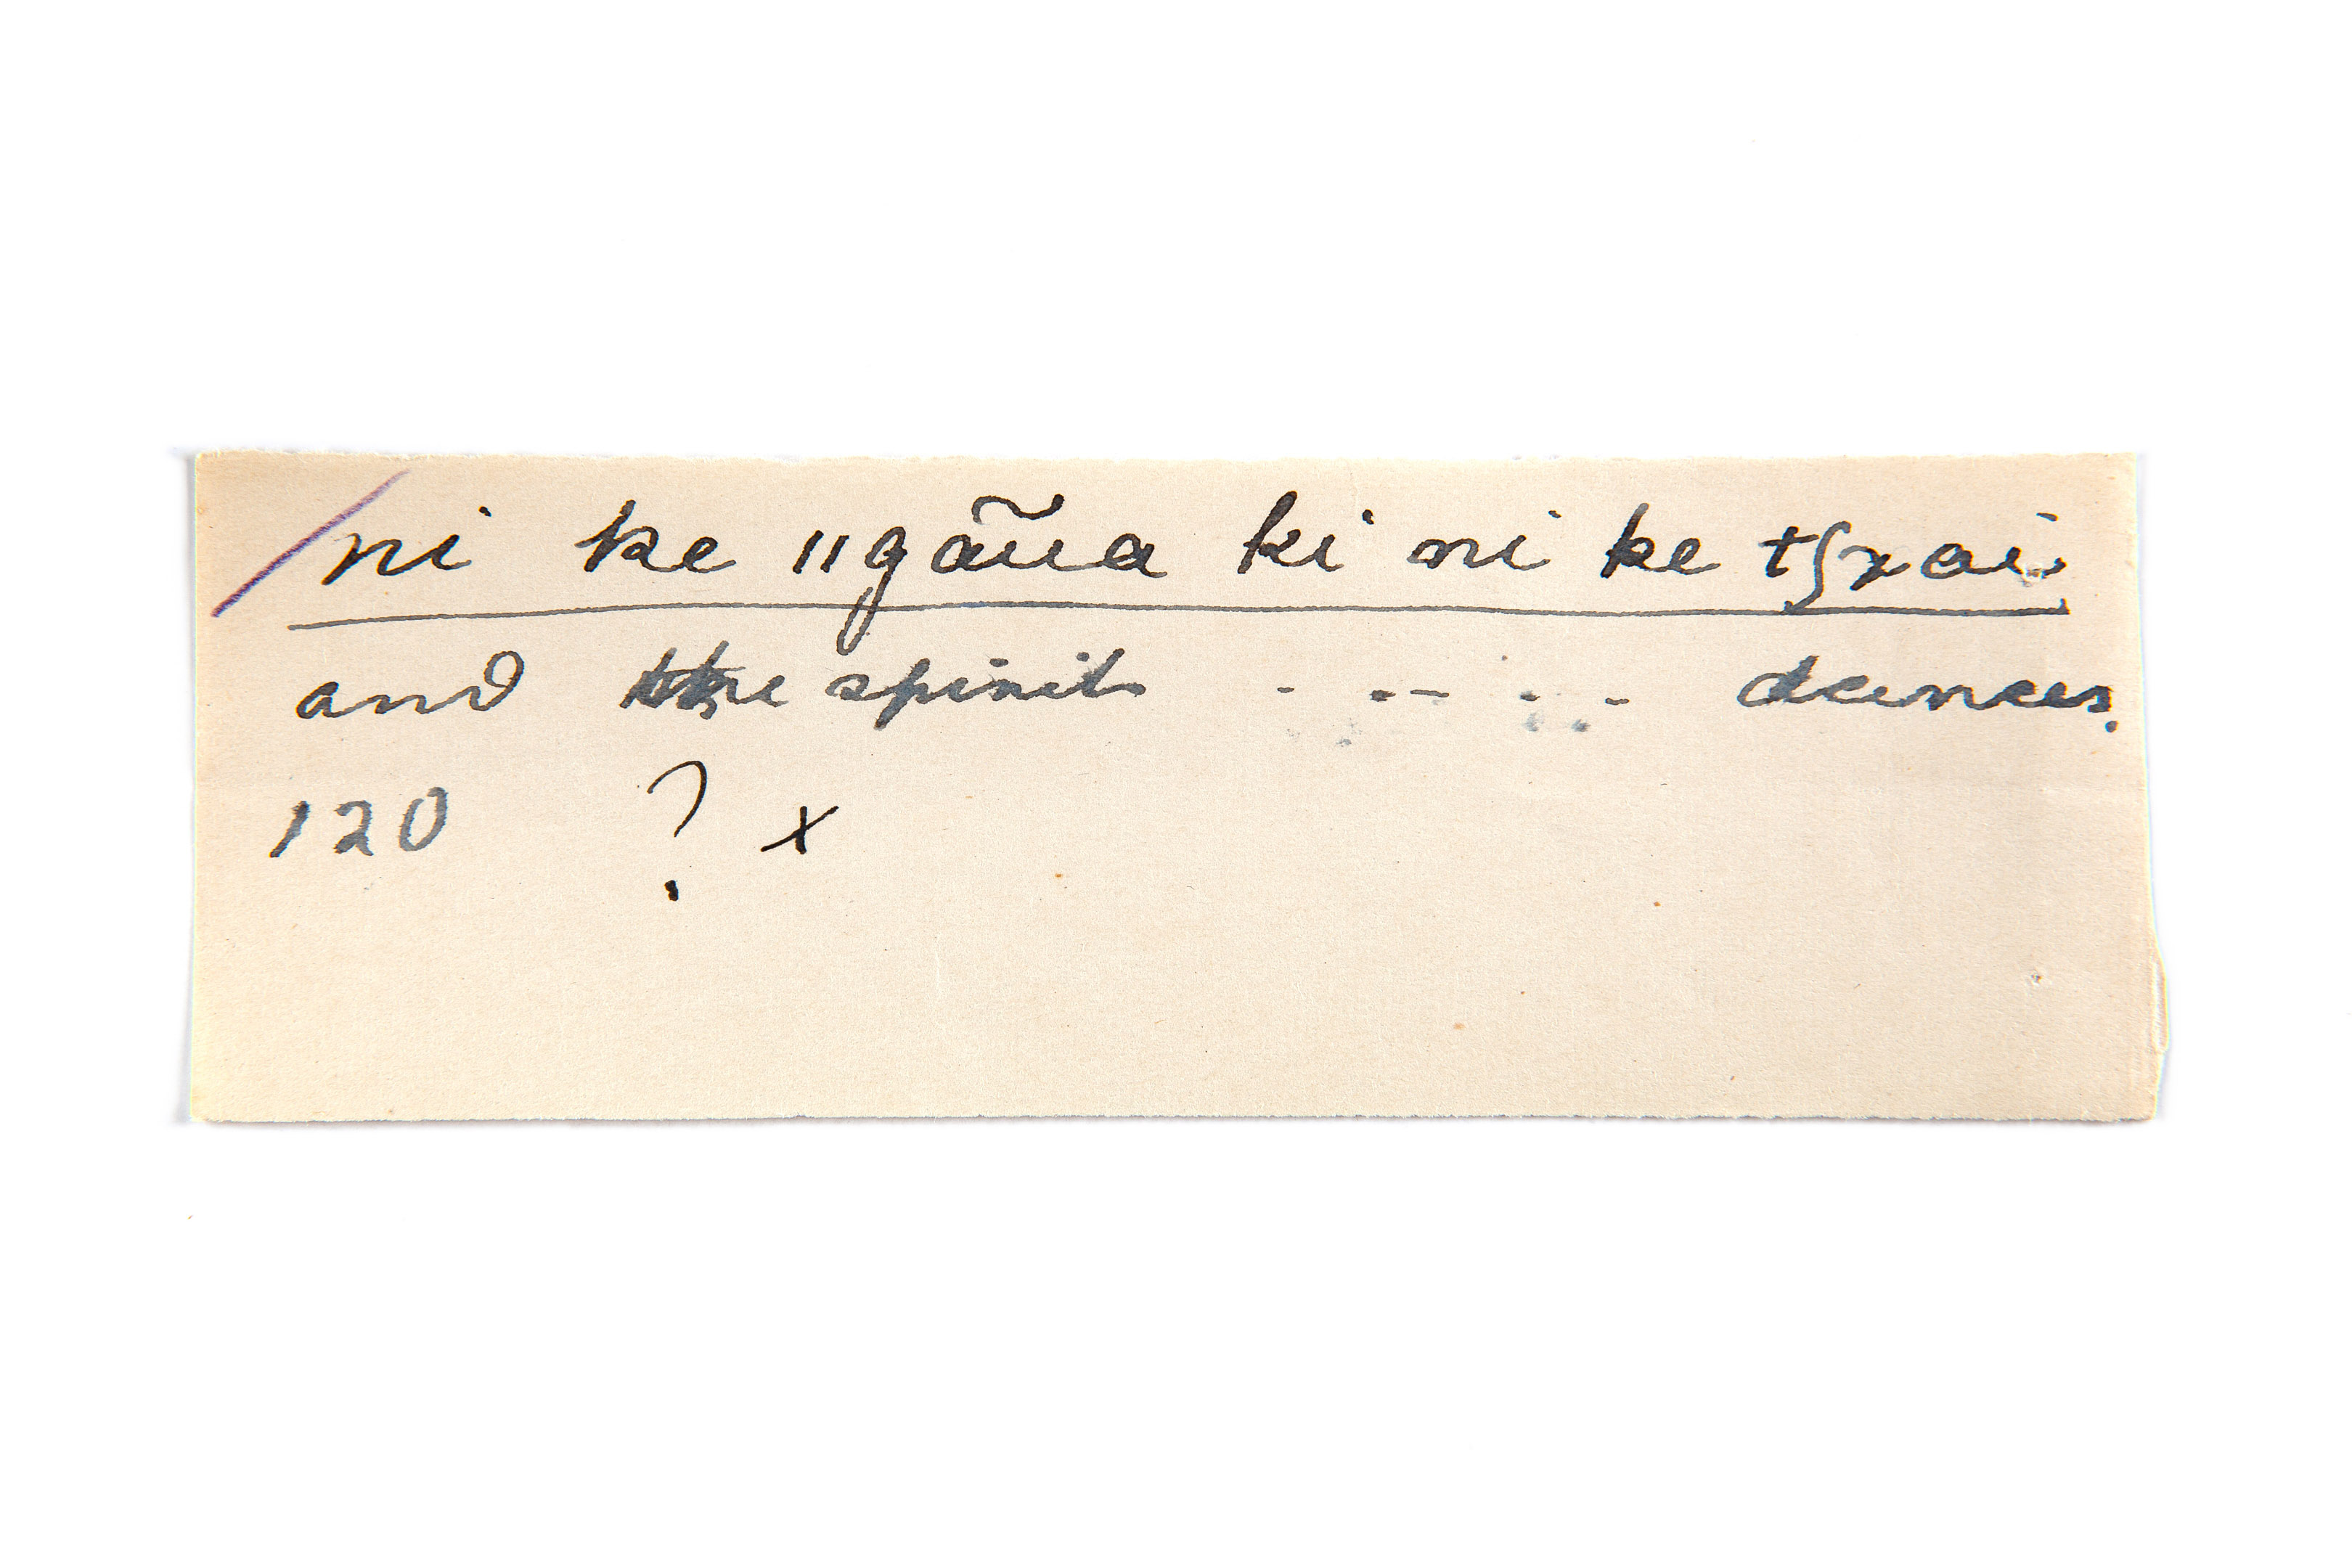 ni ke ‖gãũa ki ni ke tʃxai.
and the spirit - - - - - dances.
120 ? x